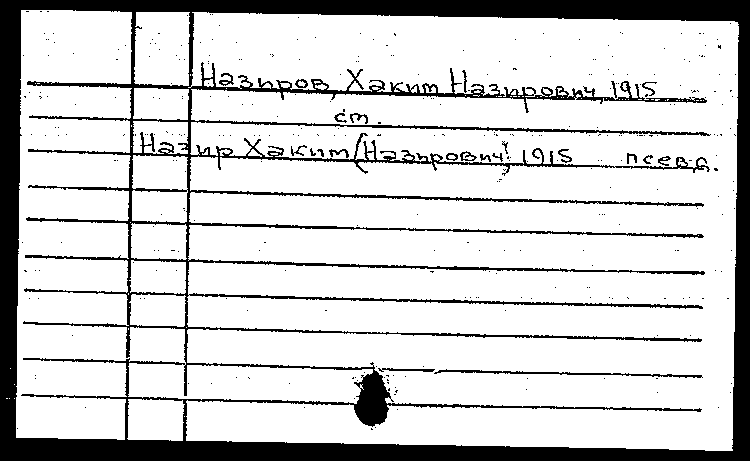 Назиров, Хаким Назирович, 1915
см.
Назир Хаким (Назирович), 1915 псевд.